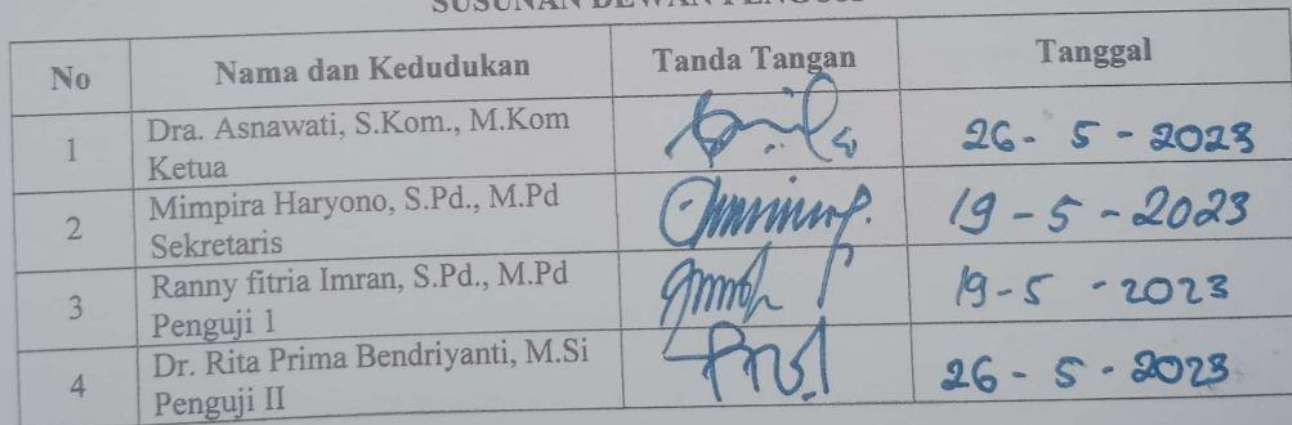 SUSUNAN DEWAN PENGUJI
No Nama dan Kedudukan Tanda Tangan Tanggal
1 Dra. Asnawati, S.Kom., M.Kom
Ketua
26 - 5 - 2023
2 Mimpira Haryono, S.Pd., M.Pd
Sekretaris
19 - 5 - 2023
3 Ranny fitria Imran, S.Pd., M.Pd
Penguji 1
19 - 5 - 2023
4 Dr. Rita Prima Bendriyanti, M.Si
Penguji II
26 - 5 - 2023